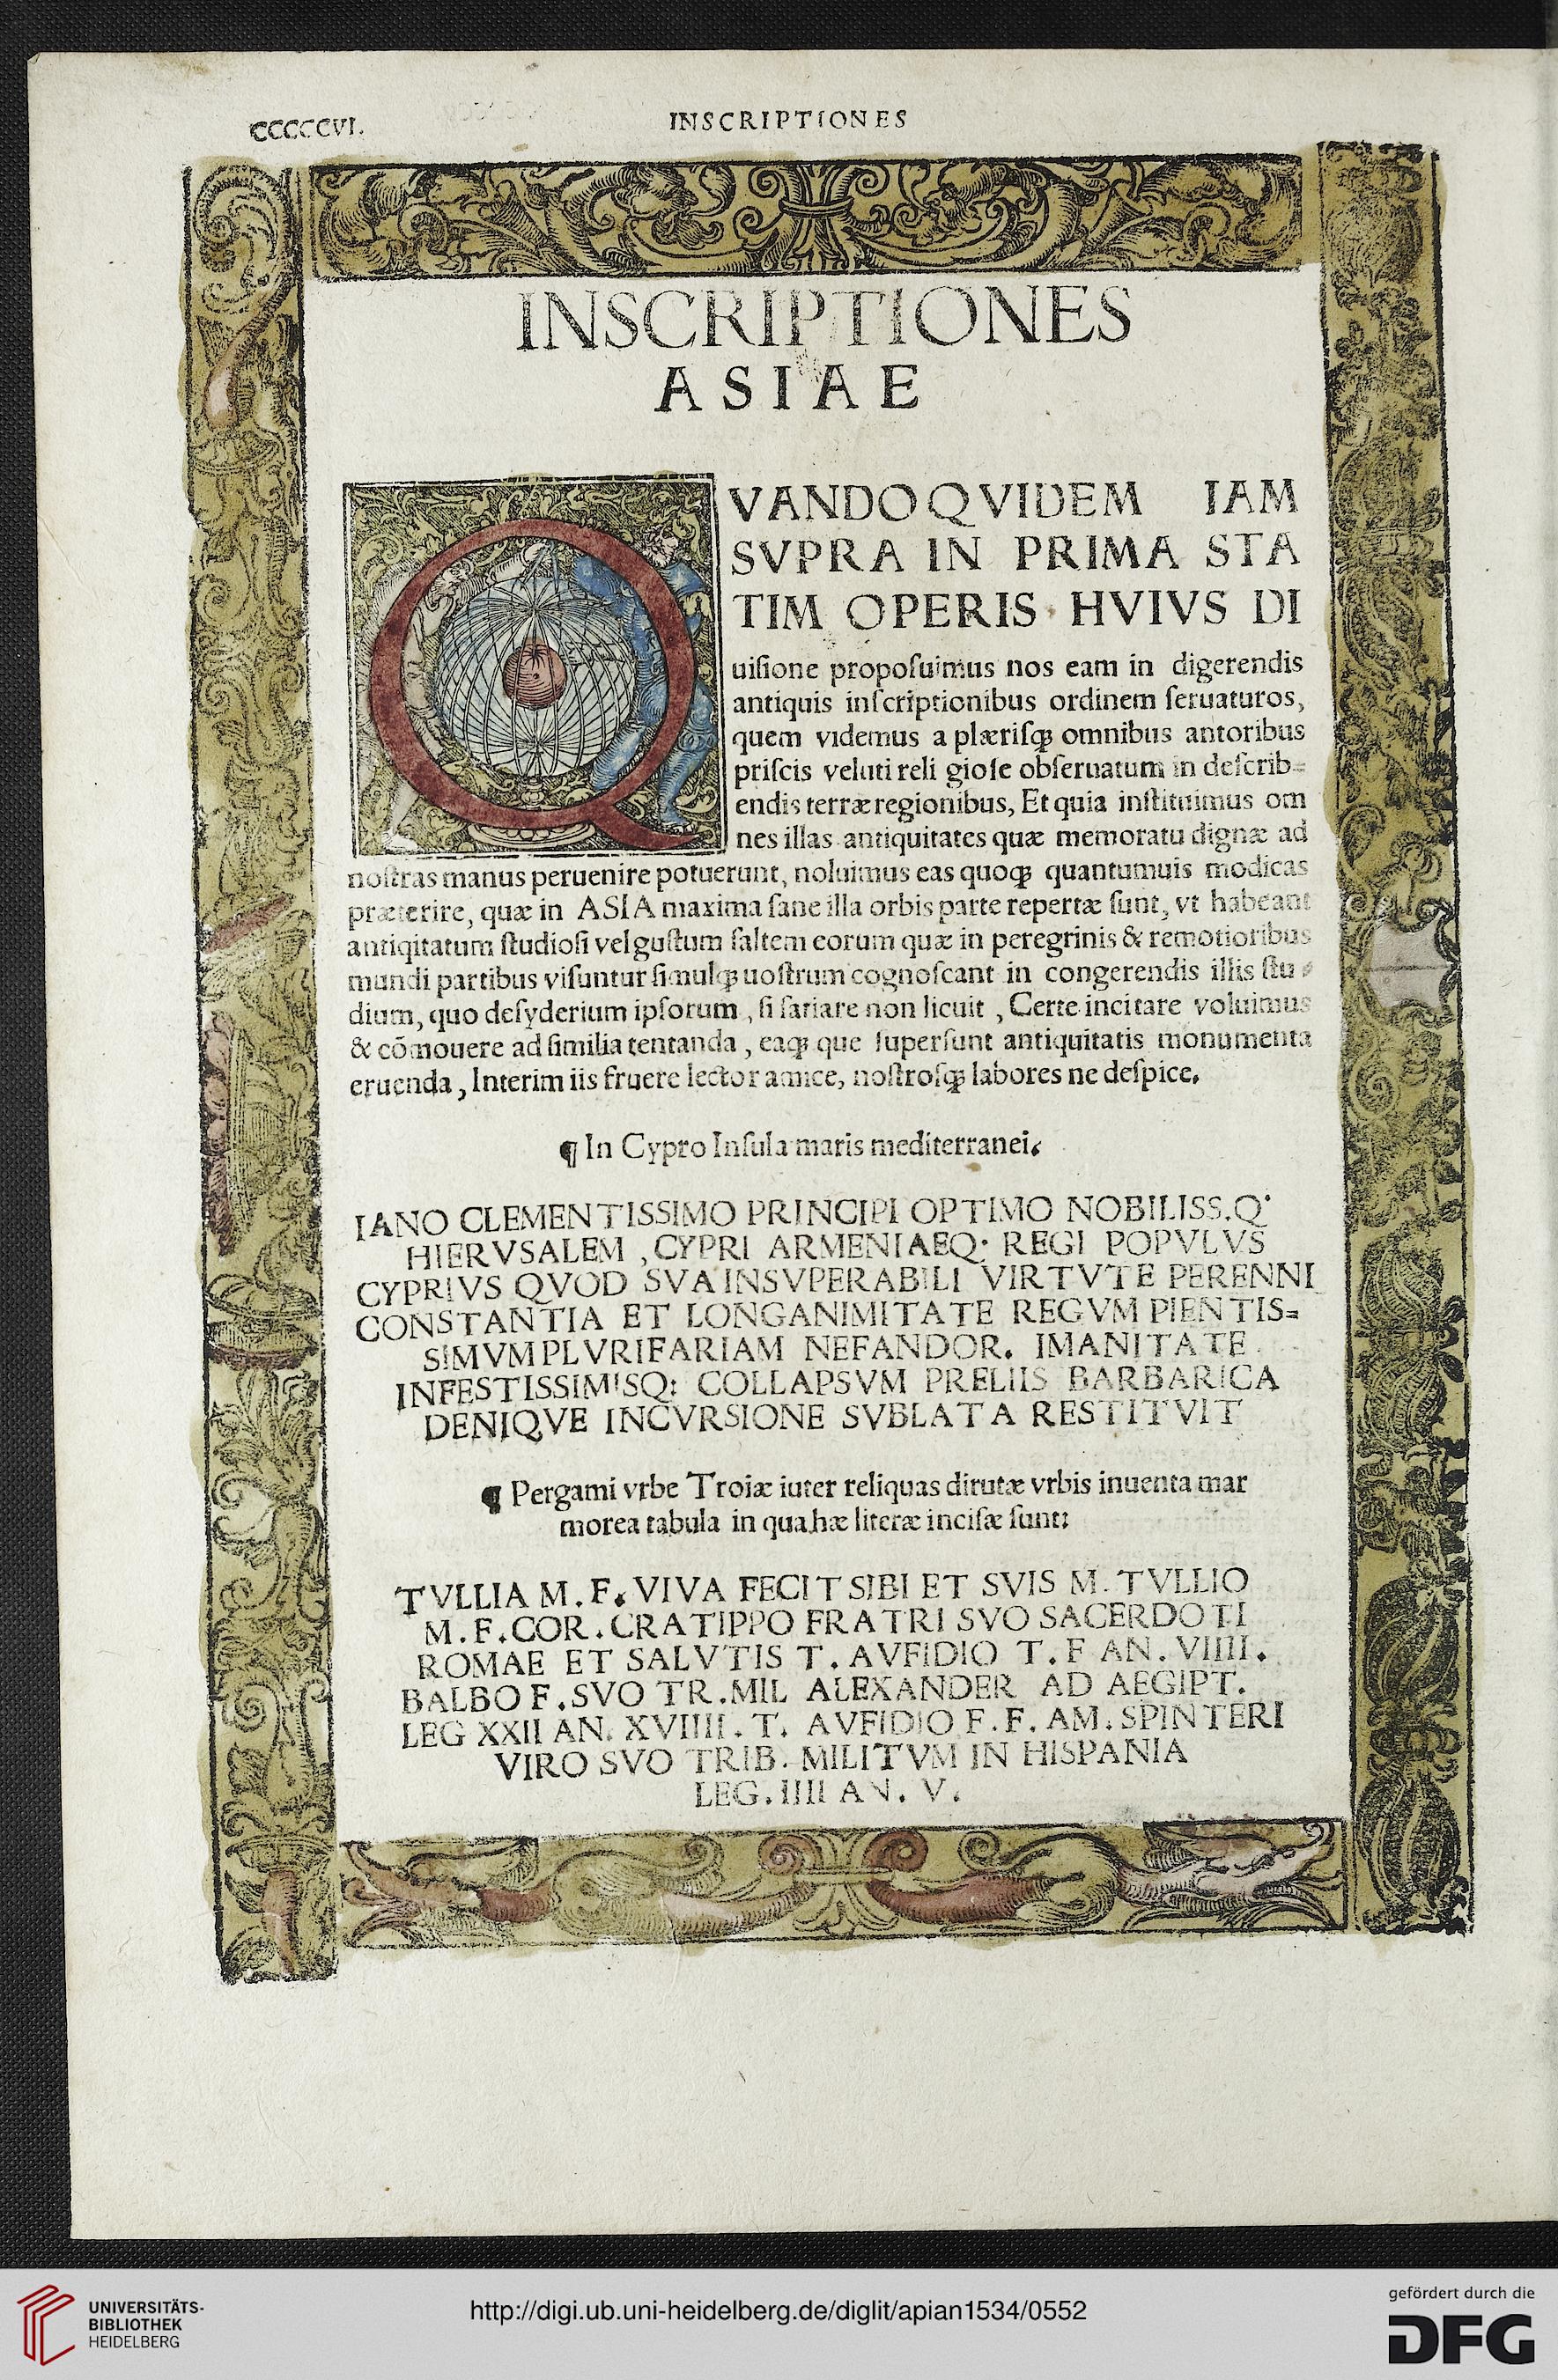 CCCCCVI.
INSCRIPTIONES
INSCRIPTIONES
ASIAE
QVANDOQVIDEM IAM
SVPRA IN PRIMA STA
TIM OPERIS HVIVS DI
uiſione propoſuimus nos eam in digerendis
antiquis inſcriptionibus ordinem ſeruaturos,
quem videmus a plæriſqꝫ omnibus antoribus
priſcis veluti reli gioſe obſeruatum in deſcrib-
endis terræ regionibus, Et quia inſtituimus om
nes illas antiquitates quæ memoratu dignæ ad
noſtras manus peruenire potuerunt, noluimus eas quoqꝫ quantumuis modicas
præterire, quæ in ASIA maxima ſane illa orbis parte repertæ ſunt, vt habeant
antiqitatum ſtudioſi vel guſtum ſaltem eorum quæ in peregrinis & remotioribus
mundi partibus viſuntur ſimulqꝫ uoſtrum cognoſcant in congerendis illis ſtu-
dium, quo deſyderium ipſorum, ſi ſatiare non licuit, Certe incitare voluimus
& cõmouere ad ſimilia tentanda, eaqꝫ que ſuperſunt antiquitatis monumenta
eruenda, Interim iis fruere lector amice, noſtroſqꝫ labores ne deſpice.
¶ In Cypro Inſula maris mediterranei.
IANO CLEMENTISSIMO PRINCIPI OPTIMO NOBILISS.Q·
HIERVSALEM, CYPRI ARMENIAEQ· REGI POPVLVS
CYPRIVS QVOD SVA INSVPERABILI VIRTVTE PERENNI
CONSTANTIA ET LONGANIMITATE REGVM PIENTIS=
SIMVM PLVRIFARIAM NEFANDOR. IMANITATE
INFESTISSIMISQ: COLLAPSVM PRELIIS BARBARICA
DENIQVE INCVRSIONE SVBLATA RESTITVIT
¶ Pergami vrbe Troiæ iuter reliquas dirutæ vrbis inuenta mar
morea tabula in qua hæ literæ inciſæ ſunt:
TVLLIA M.F. VIVA FECIT SIBI ET SVIS M. TVLLIO
M.F.COR.CRATIPPO FRATRI SVO SACERDOTI
ROMAE ET SALVTIS T. AVFIDIO T. F AN. VIIII.
BALBO F.SVO TR.MIL ALEXANDER AD AEGIPT.
LEG XXII AN. XVIIII. T. AVFIDIO F.F. AM.SPINTERI
VIRO SVO TRIB. MILITVM IN HISPANIA
LEG.IIII AN. V.
UNIVERSITÄTS-
BIBLIOTHEK
HEIDELBERG
http://digi.ub.uni-heidelberg.de/diglit/apian1534/0552
gefördert durch die
DFG